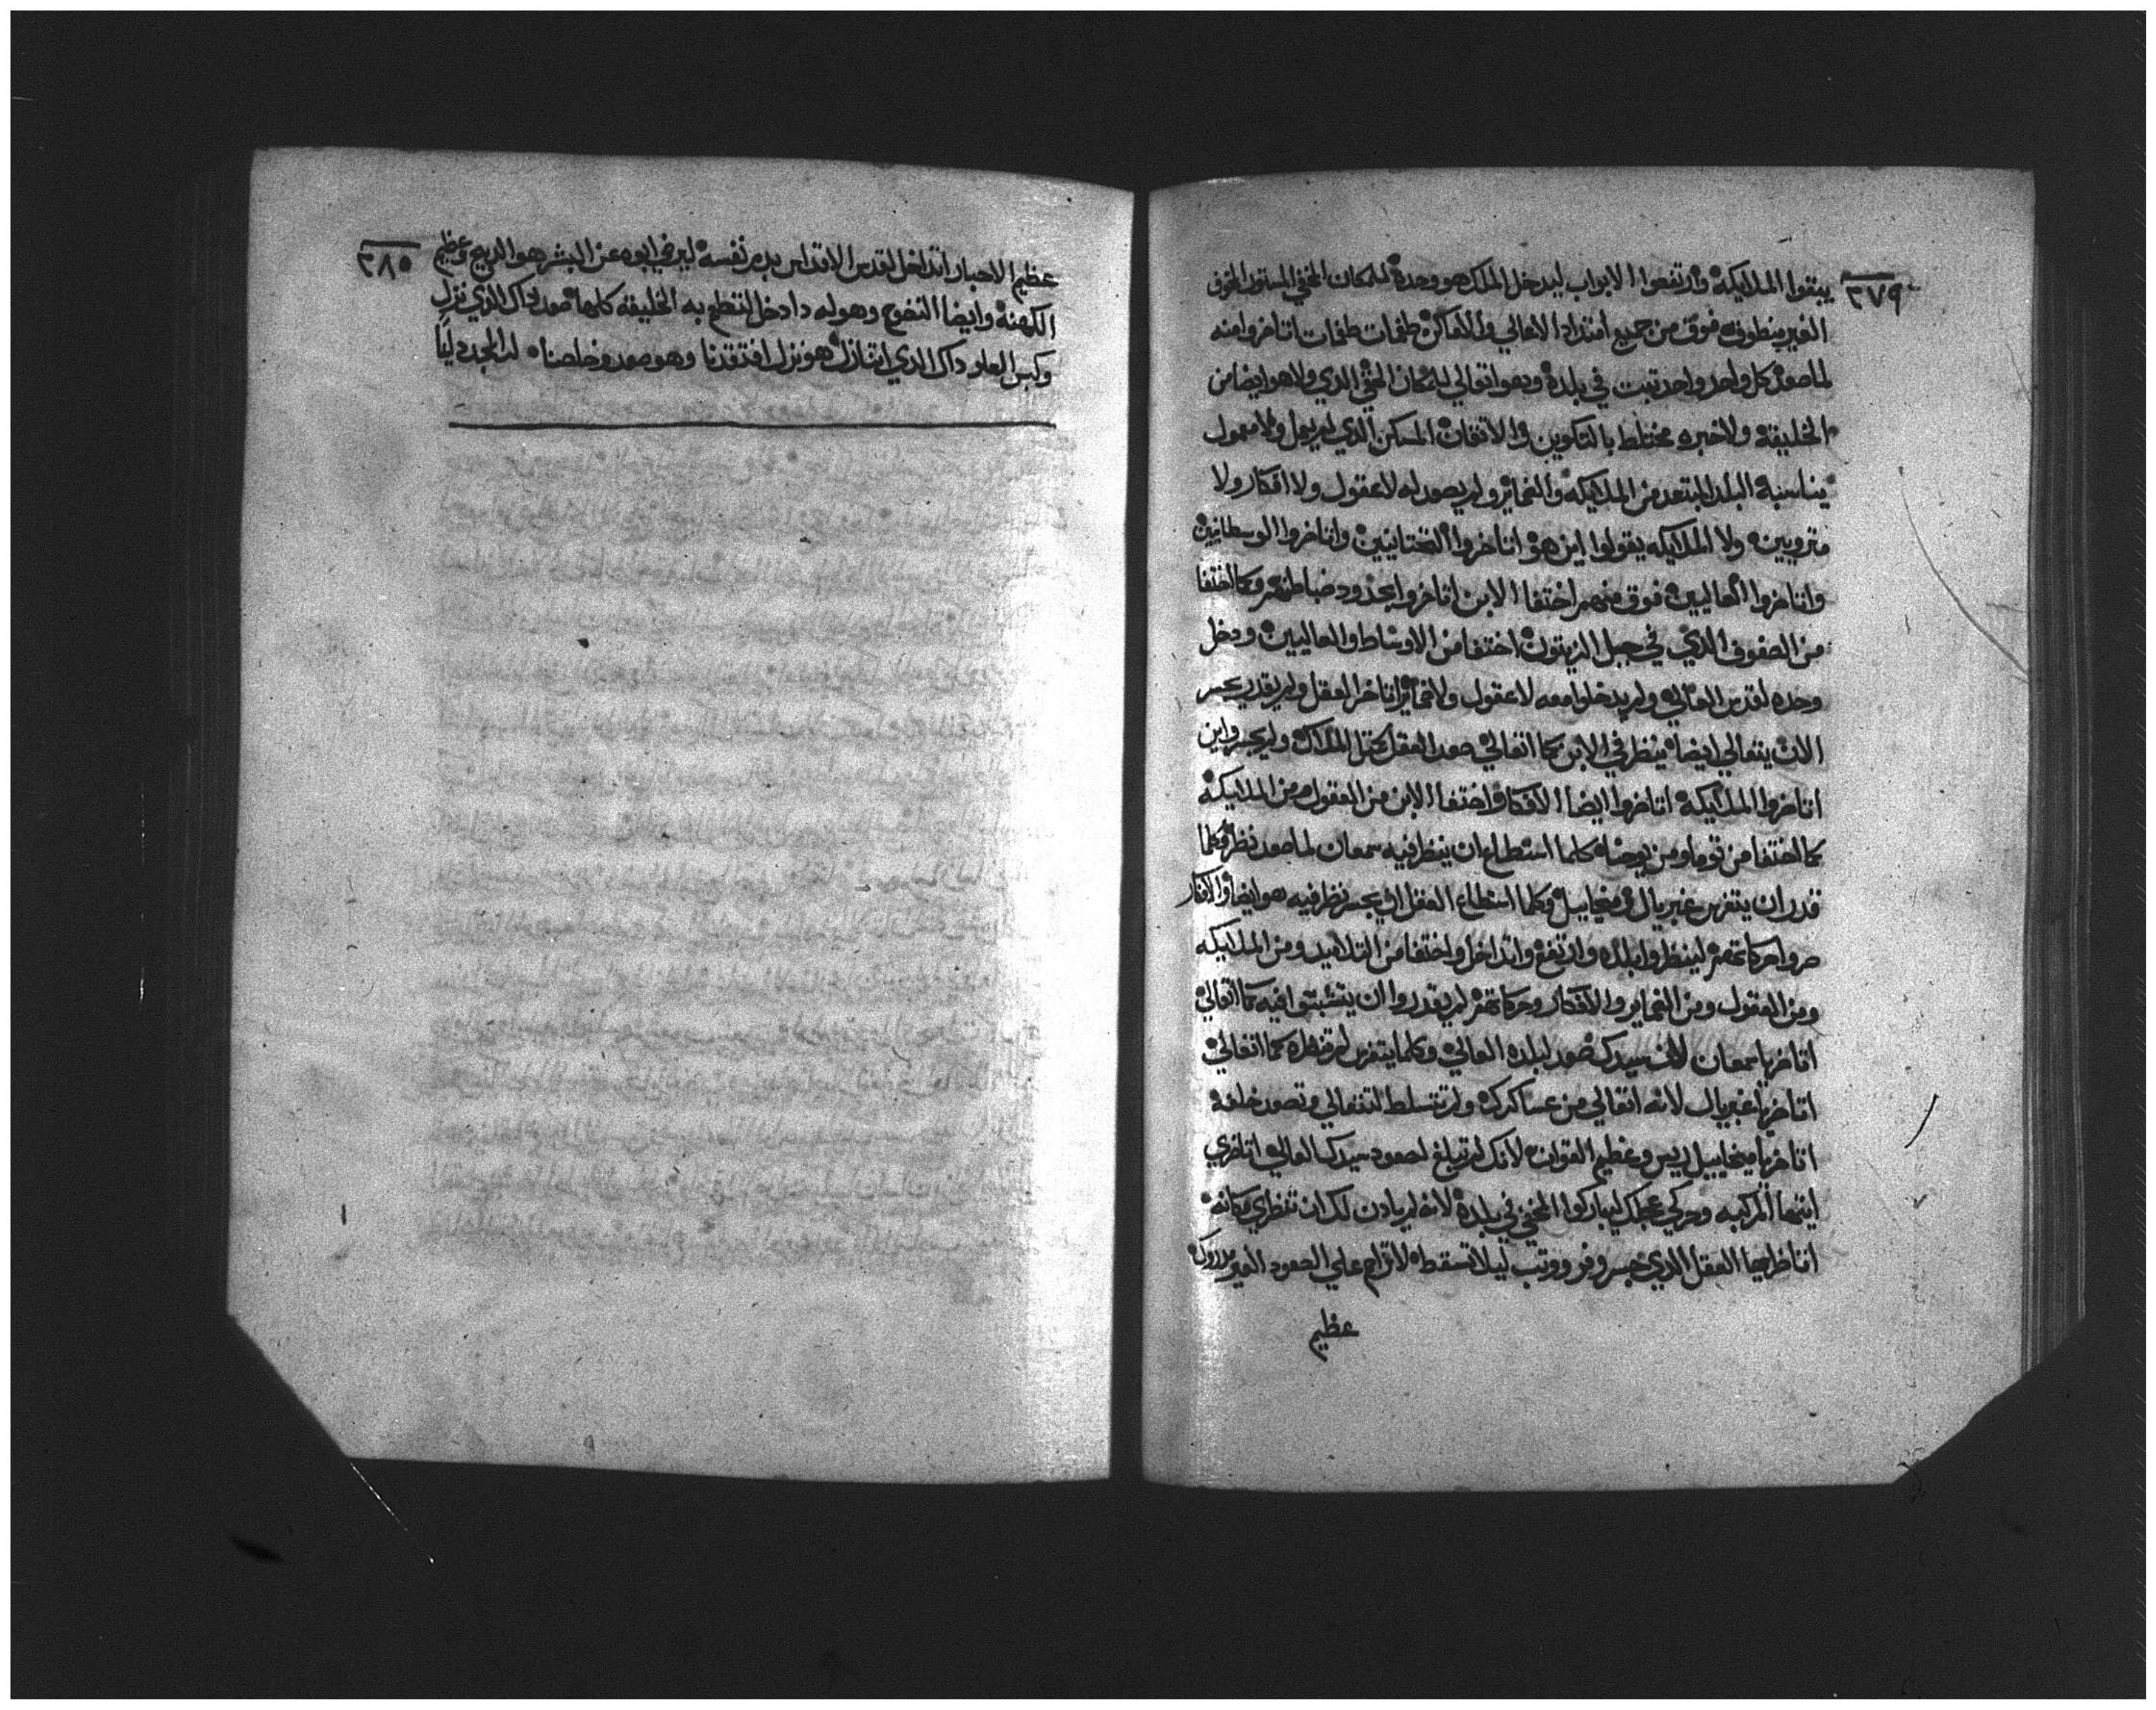 ٣٧٩
يبقوا الملايكة وارتفعوا الابواب ليدخل الملك هو وحده للمكان المخفي المستور المخوف
الغير منطوق فوق من جميع امتداد الاهالي والاماكن طغمات طغمات اتاخروا منه
لما صعد كل واحد واحد تبت في بلده وهو اتعالي للمكان المخفي الذي ولا هو ايضا من
الخليقة ولا خبره مختلط بالتكوين والاتقان المسكن الذي لم يعمل ولا معمول
يناسبة البلد المبتعد من الملايكة والضماير ولم يصعد له لا عقول ولا افكار ولا
متروبين ولا الملايكه يقولوا اين هو اتاخروا التحتانيين واتاخروا الوسطانيين
واتاخروا العاليين فوق منهم اختفا الابن اتاخروا بحدود ضباطنهم وكما اختفا
من الصفوف الذي في جبل الزيتون اختفا من الاوساط والعاليين ودخل
وحده لقدس العالي ولم يدخلوا معه لا عقول ولا ضماير اتاخر العقل ولم يقدر يجسر
الان يتعالي ايضا ينظر في الابن كما اتعالي صعد العقل لحتا الملاك ولم يجسر واين
اتاخروا الملايكة اتاخروا ايضا الافكار واختفا الابن من العقول ومن الملايكة
كما اختفا من توما ومن يوحنا كلما اسطاع ان ينظر فيه سمعان لما صعد نظر وكلما
قدر ان يتفرس غبريال و ميخاييل وكلما استطاع العقل ان يجسر نظر فيه هو ايضا والافكار
صروا حركاتهم لينظروا بلده وارتفع واتداخل واختفا من التلاميد ومن الملايكه
ومن العقول ومن الضماير والافكار وحركاتهم لم يقدروا ان يتشبتوا فيه كما اتعالي
اتاخر يا سمعان لان سيدك صعد لبلده العالي وكلما يتفرس لم تنظره كما اتعالي
اتاخر يا غبريال لانه اتعالي من عساكرك ولم تتسلط لتتعالي وتصعد خلفه
اتاخر يا ميخاييل ريس وعظيم القوات لانك لم تبلغ لصعود سيدك العالي اتاخري
ايتها المركبه وحركي عجلك ليباركوا المخفي في بلده لانه لم ياذن لك ان تنظري مكانه
اتاخر ايها العقل الذي خسر وفر ووتب ليلا تسقط لا تزاحم علي الصعود الغير مدروك
عظيم
٣٨٠
عظيم الاحبار اتداخل لقدس الاقداس بدم نفسه ليرضي ابوه عن البشر هو الدبيح وعظيم
الكهنة وايضا النضوح وهو له دا دخل لتتطلع به الخليقه كلها صعد داك الذي نزل
وكبس العلو داك الذي اتنازل هو نزل افتقدنا وهو صعد وخلصنا له المجد دايما